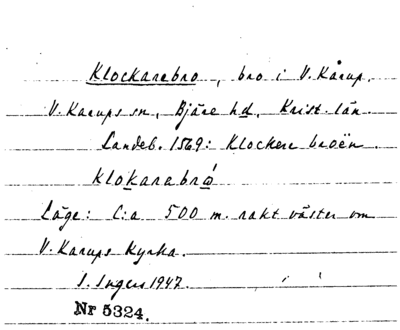 Klockarebro, bro i V. Kårup.
V. Karups sn, Bjäre hd, Krist. län
Landeb. 1569: Klockere broën.
Klokarebró
Läge: C:a 500 m. rakt väster om
V. Karups Kyrka.
S. Ingers 1947.
Nr 5324.